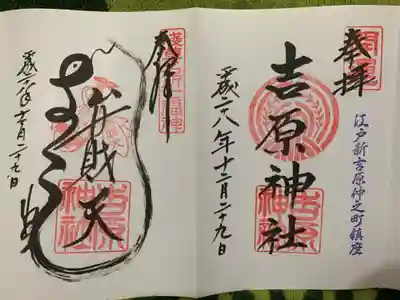 奉拝
江戸新吉原仲之町鎮座
吉原神社
吉原
神社
平成二八年十二月二十九日
奉拝
弁財天
吉原
神社
平成二八年十二月二十九日